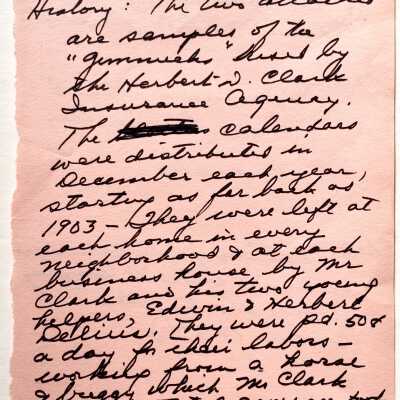 History: The two attached
are samples of the
"gimmicks" used by
the Herbert D. Clark
Insurance Agency.
The calendars
were distributed in
December each year,
starting as far back as
1903 - (They were left at
each home in every
neighborhood & at each
business house by Mr
Clark and his two young
helpers, Edwin & Herbert
Dellius. They were pd. 50¢
a day for their labors -
working from a horse
& buggy which Mr Clark